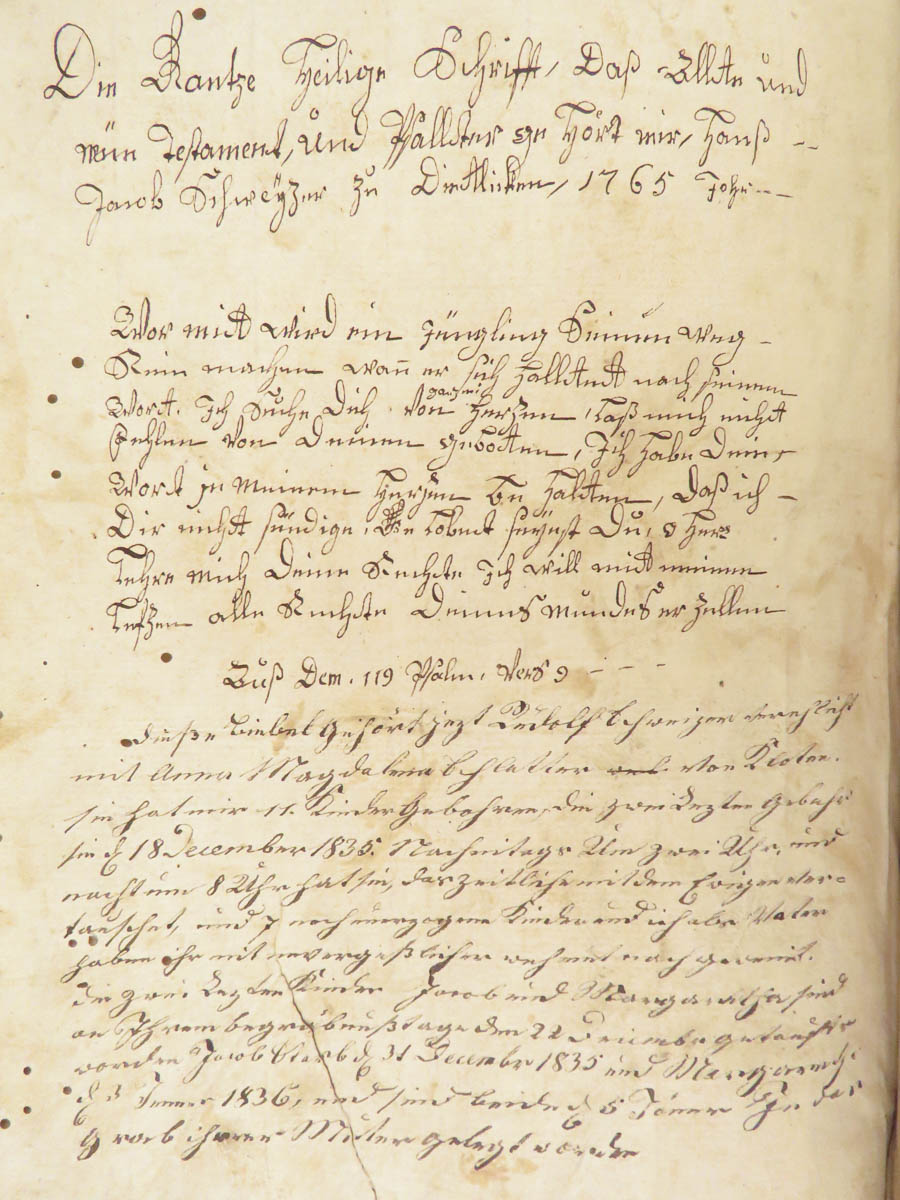 Die Gantze Heilige Schrifft, Daß Allte und
nüw Testament, und Psallter ge Hört mir, Hanß --
Jacob Schweÿzer zu Dietlicken, 1765 Johr---
Wor mitt wird ein Jüngling Seinen weg -
Rein machen wañ er sich Halltett nach seinem
Wortt. Ich Suche Dich Von gantzem Hertzen, Laß mich nicht
Fehlen Von Deinen gebotten, Ich Habe Deine
Wortt in meinem Hertzen be Haltten, Daß ich -
Dir nicht sündige, Ge Lobent seÿest Du, o Herr
Lehre mich Deine Rechte Ich will mit meinen
Leftzen alle Rechte Deines mundes er Zellen
Auß Dem. 119 Psalm, Vers 9 - - -
Dieße Biebel Gehört jezt Rudolf Schweizer verehlicht
mit Anna Magdalena Schlatter von Kloten.
sie hat mir 11. Kinder Gebohren, die zwei Lezten Gebahr
sie d 18 December 1835. Nachmitags Um zwei Uhr, und
nacht um 8 Uhr hat sie, das zeitliche mit dem Ewigen ver=
tauschet, und 7 noch unerzogene Kinder und ich als Vater
haben ihr mit unvergeßlicher wehmut nach geweint.
die zwei Lezten Kinder Jacob und Margaretha sind
an Ihrem begräbnußtage den 22 December getauft
worden Jacob Starb d 31 December 1835 und Margareth
d 3 Jenner 1836, und sind beide d 5 Jener In das
Grab ihrer Muter gelegt worden